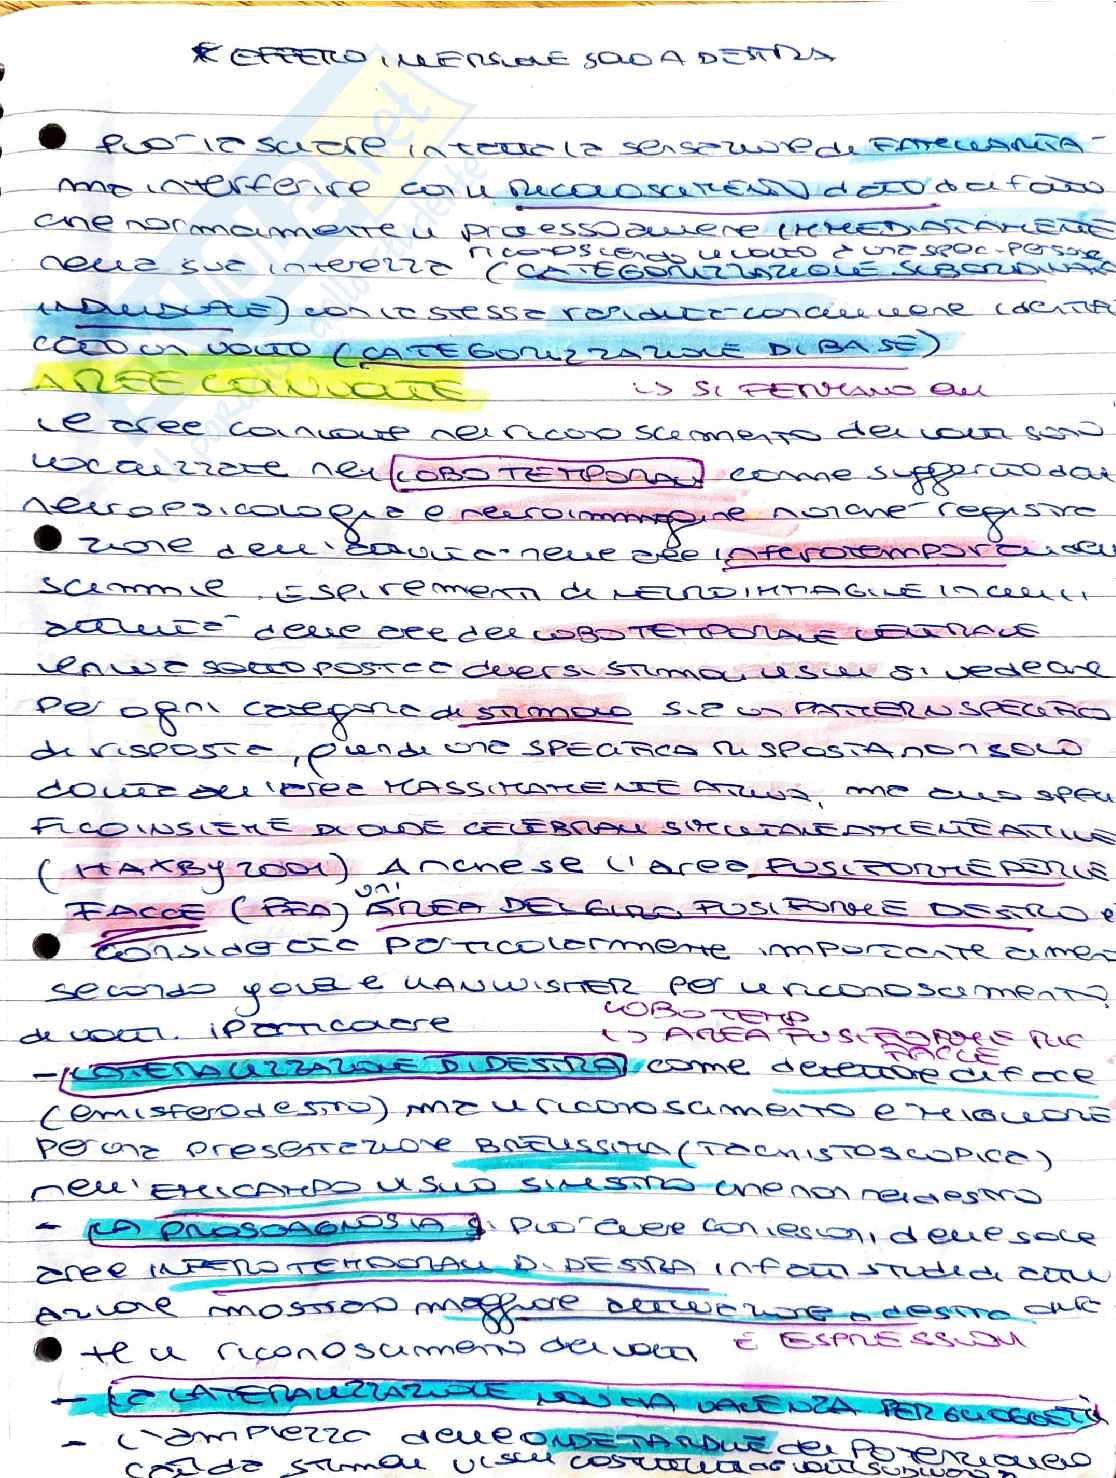 * EFFETTO INVERSIONE SOLO A DESTRA
può lasciare intatta la sensazione di FAMILIARITÀ
ma interferire con il RICONOSCIMENTO dato dal fatto
che normalmente il processo avviene IMMEDIATAMENTE
riconoscendo il volto a una spec. persona
nella sua interezza (CATEGORIZZAZIONE SUBORDINATA
INDIVIDUALE) con la stessa rapidità con cui viene identifi
cato un volto (CATEGORIZZAZIONE DI BASE)
AREE COINVOLTE
↳ SI FERMANO QUI
le aree coinvolte nel riconoscimento dei volti sono
localizzate nei LOBO TEMPORALI come suggerito dai
neuropsicologia e neuroimmagine nonché registra
zione dell'attività nelle aree inferotemporali delle
scimmie. ESPERIMENTI di NEUROIMMAGINE in cui
attività delle aree del LOBO TEMPORALE VENTRALE
veniva sottoposte a diversi stimoli visivi si vede che
per ogni categoria di stimolo si ha un PATTERN SPECIFICO
di risposta, quindi una SPECIFICA RISPOSTA non solo
dovuta all'area MASSIMAMENTE ATTIVA, ma allo speci
FICO INSIEME DI CELEBRALI SIMULTANEAMENTE ATTIVE
(HAXBY 2001) Anche se l'area FUSIFORME PER LE
FACCE (FFA) un' AREA DEL GIRO FUSIFORME DESTRO è
considerata particolarmente importante almeno
secondo e KANWISHER per il riconoscimento
LOBO TEMP
di volti. iParticolare
↳ AREA FUSIFORME RIC
FACCE
- LATERALIZZAZIONE DI DESTRA come detettore di facce
(emisfero destro) ma il riconoscimento è MIGLIORE
per una presentazione BREVISSIMA (TACHISTOSCOPICA)
nell'EMICAMPO VISIVO SINISTRO che non nel destro
- LA PROSOAGNOSIA si può avere con lesioni delle sole
aree INFEROTEMPORALI DI DESTRA infatti studi di attiv
AZIONE mostrano maggiore attivazione a destra duran
te il riconoscimento dei volti
E ESPRESSIONI
- la LATERALIZZAZIONE NON HA VALENZA PER GLI OGGETTI
- L'ampiezza delle ONDE TARDIVE dei potenziali evo
cati da stimoli visivi